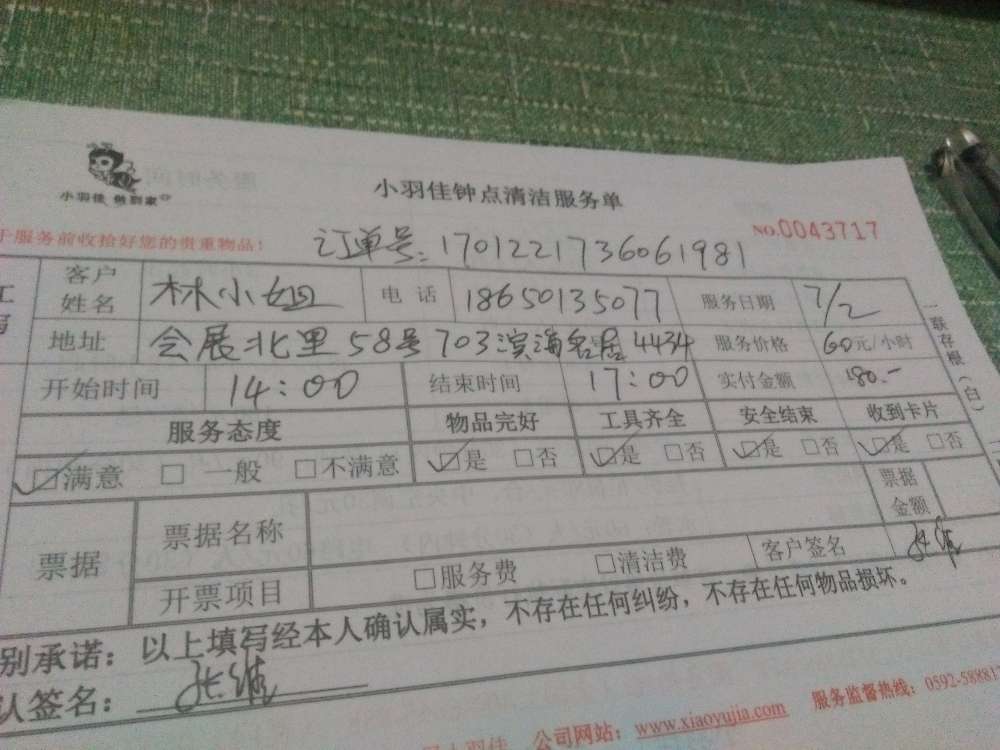 小羽佳 做到家
小羽佳钟点清洁服务单
NO.0043717
于服务前收拾好您的贵重物品!
订单号:1701221736061981
客户姓名 林小姐 电话 18650135077 服务日期 7/2
地址 会展北里58号703滨海名居4434 服务价格 60元/小时
开始时间 14:00 结束时间 17:00 实付金额 180.-
服务态度 物品完好 工具齐全 安全结束 收到卡片
☑满意 □一般 □不满意 ☑是 □否 ☑是 □否 ☑是 □否 ☑是 □否
票据 票据名称 票据金额
开票项目 □服务费 □清洁费 客户签名
一联存根(白)
别承诺:以上填写经本人确认属实,不存在任何纠纷,不存在任何物品损坏。
认签名:
公司网站:www.xiaoyujia.com 服务监督热线:0592-58881